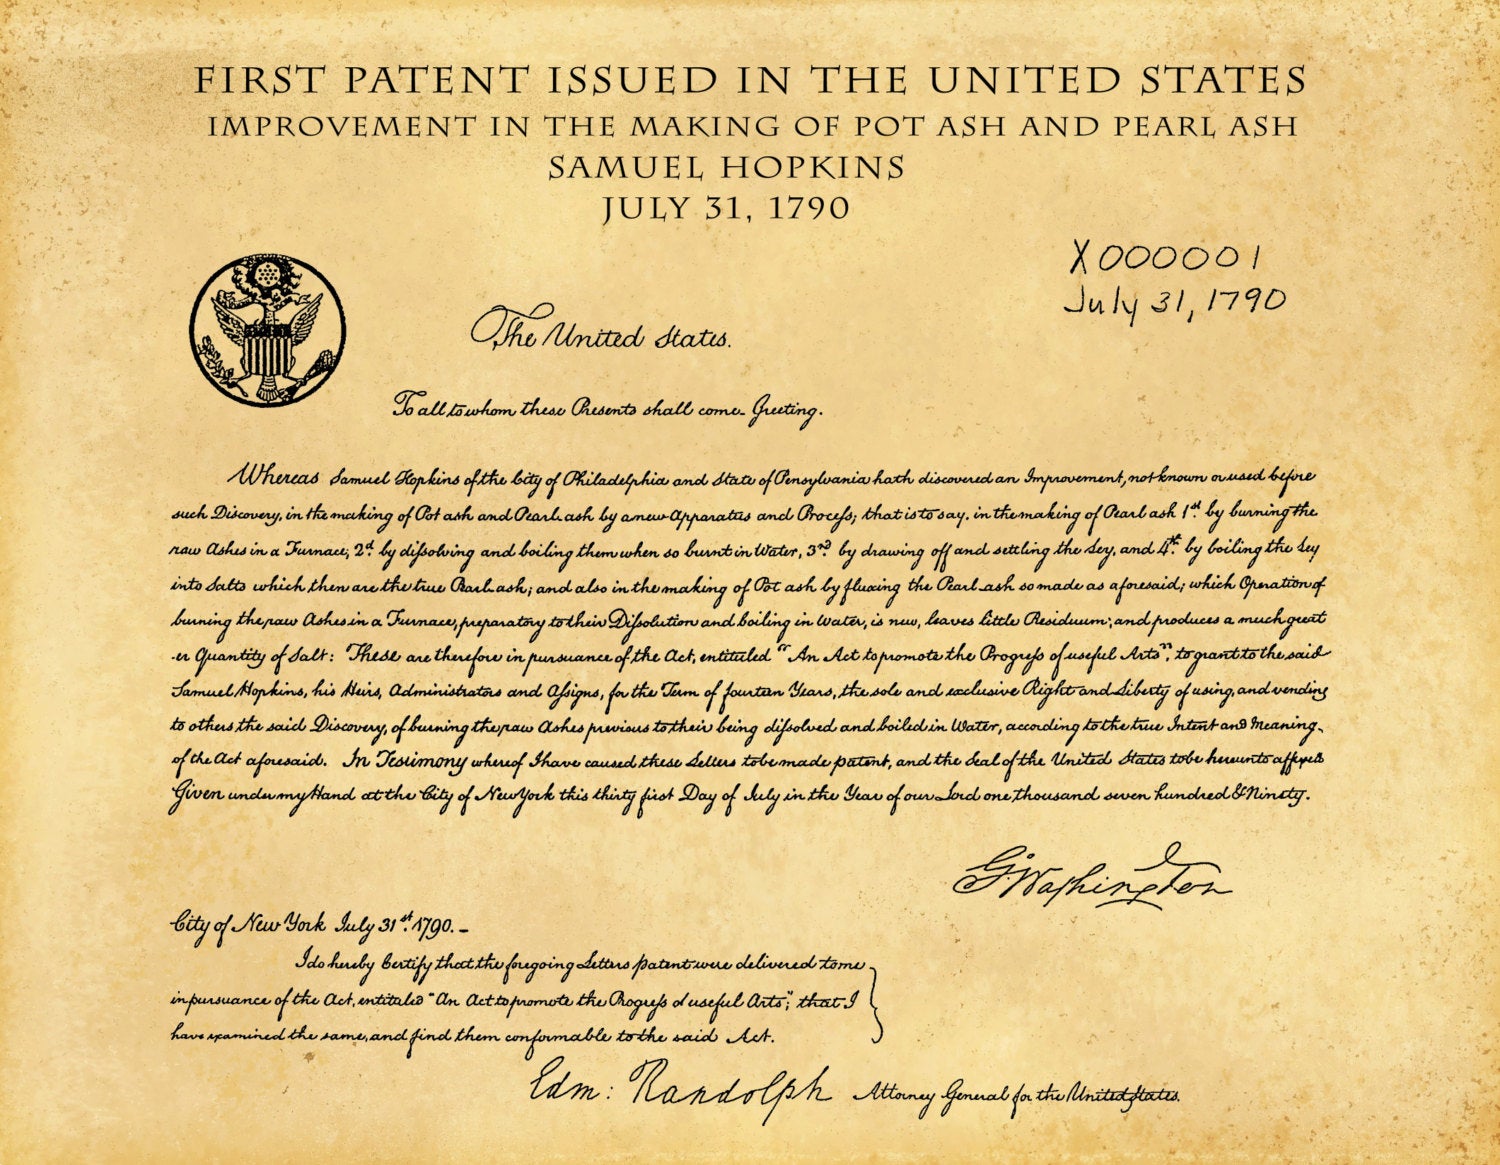 FIRST PATENT ISSUED IN THE UNITED STATES
IMPROVEMENT IN THE MAKING OF POT ASH AND PEARL ASH
SAMUEL HOPKINS
JULY 31, 1790
X000001
July 31, 1790
The United States.
To all to whom these Presents shall come Greeting.
Whereas Samuel Hopkins of the City of Philadelphia and State of Pensylvania hath discovered an Improvement, not known or used before
such Discovery, in the making of Pot ash and Pearl ash by a new Apparatus and Process; that is to say, in the making of Pearl ash 1st. by burning the
raw Ashes in a Furnace, 2d. by dissolving and boiling them when so burnt in Water, 3rd. by drawing off and settling the Ley, and 4th. by boiling the Ley
into Salts which then are the true Pearl ash; and also in the making of Pot ash by fluxing the Pearl ash so made as aforesaid; which Operation of
burning the raw Ashes in a Furnace, preparatory to their Dissolution and boiling in Water, is new, leaves little Residuum; and produces a much great
-er Quantity of Salt: These are therefore in pursuance of the Act, entituled "An Act to promote the Progress of useful Arts", to grant to the said
Samuel Hopkins, his Heirs, Administrators and Assigns, for the Term of fourteen Years, the sole and exclusive Right and Liberty of using, and vending
to others the said Discovery, of burning the raw Ashes previous to their being dissolved and boiled in Water, according to the true Intent and Meaning
of the Act aforesaid. In Testimony whereof I have caused these Letters to be made patent, and the Seal of the United States to be hereunto affixed
Given under my Hand at the City of New York this thirty first Day of July in the Year of our Lord one thousand seven hundred & Ninety.
G. Washington
City of New York July 31st. 1790.-
I do hereby Certify that the foregoing Letters patent were delivered to me
in pursuance of the Act, entituled "An Act to promote the Progress of useful Arts"; that I
have examined the same, and find them conformable to the said Act.
Edm: Randolph Attorney General for the United States.